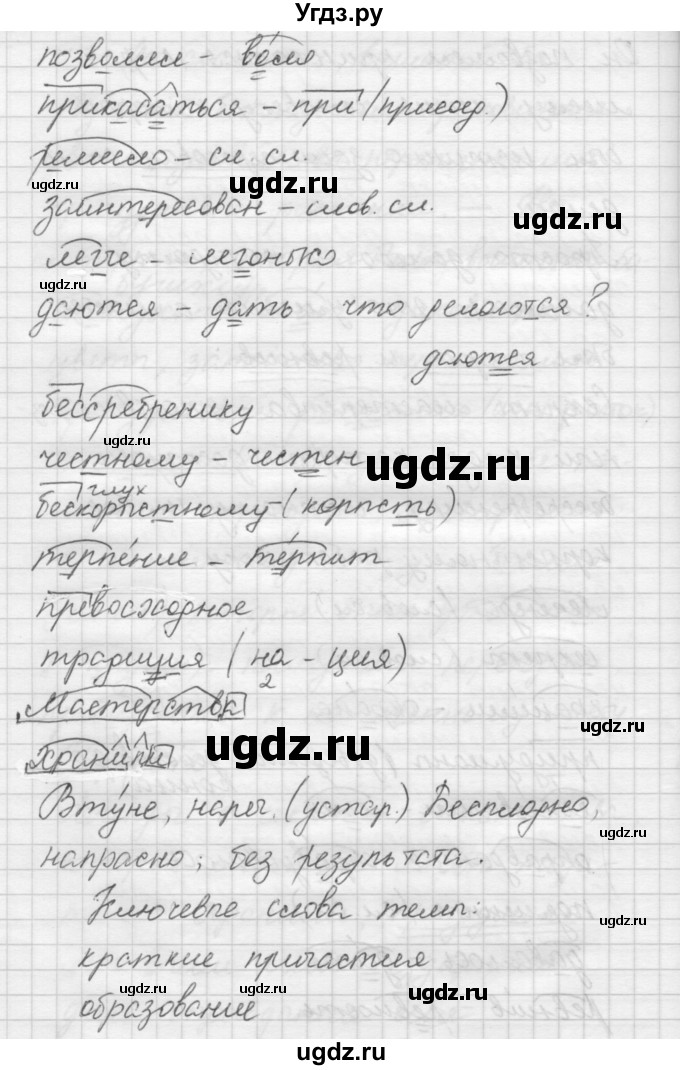 Угдз.ру
позволил - воля
прикасаться - при (присоед.)
ugdz.ru
ремесло - сл. сл.
ugdz.ru
заинтересован - слов. сл.
ugdz.ru
легче - легонько
ugdz.ru
даются - дать что делаются?
даются
бессребренику
ugdz.ru
честному - честен
ugdz.ru
глух
бескорыстному - (корысть)
терпение - терпит
превосходное
традиция (на - ция)
2
Мастерства
ugdz.ru
хранили
Втуне, нареч. (устар.) Бесплодно,
ugdz.ru
напрасно; без результата.
Ключевые слова темы:
краткие причастия
ugdz.ru ugdz.ru ugdz.ru
образование
ugdz.ru